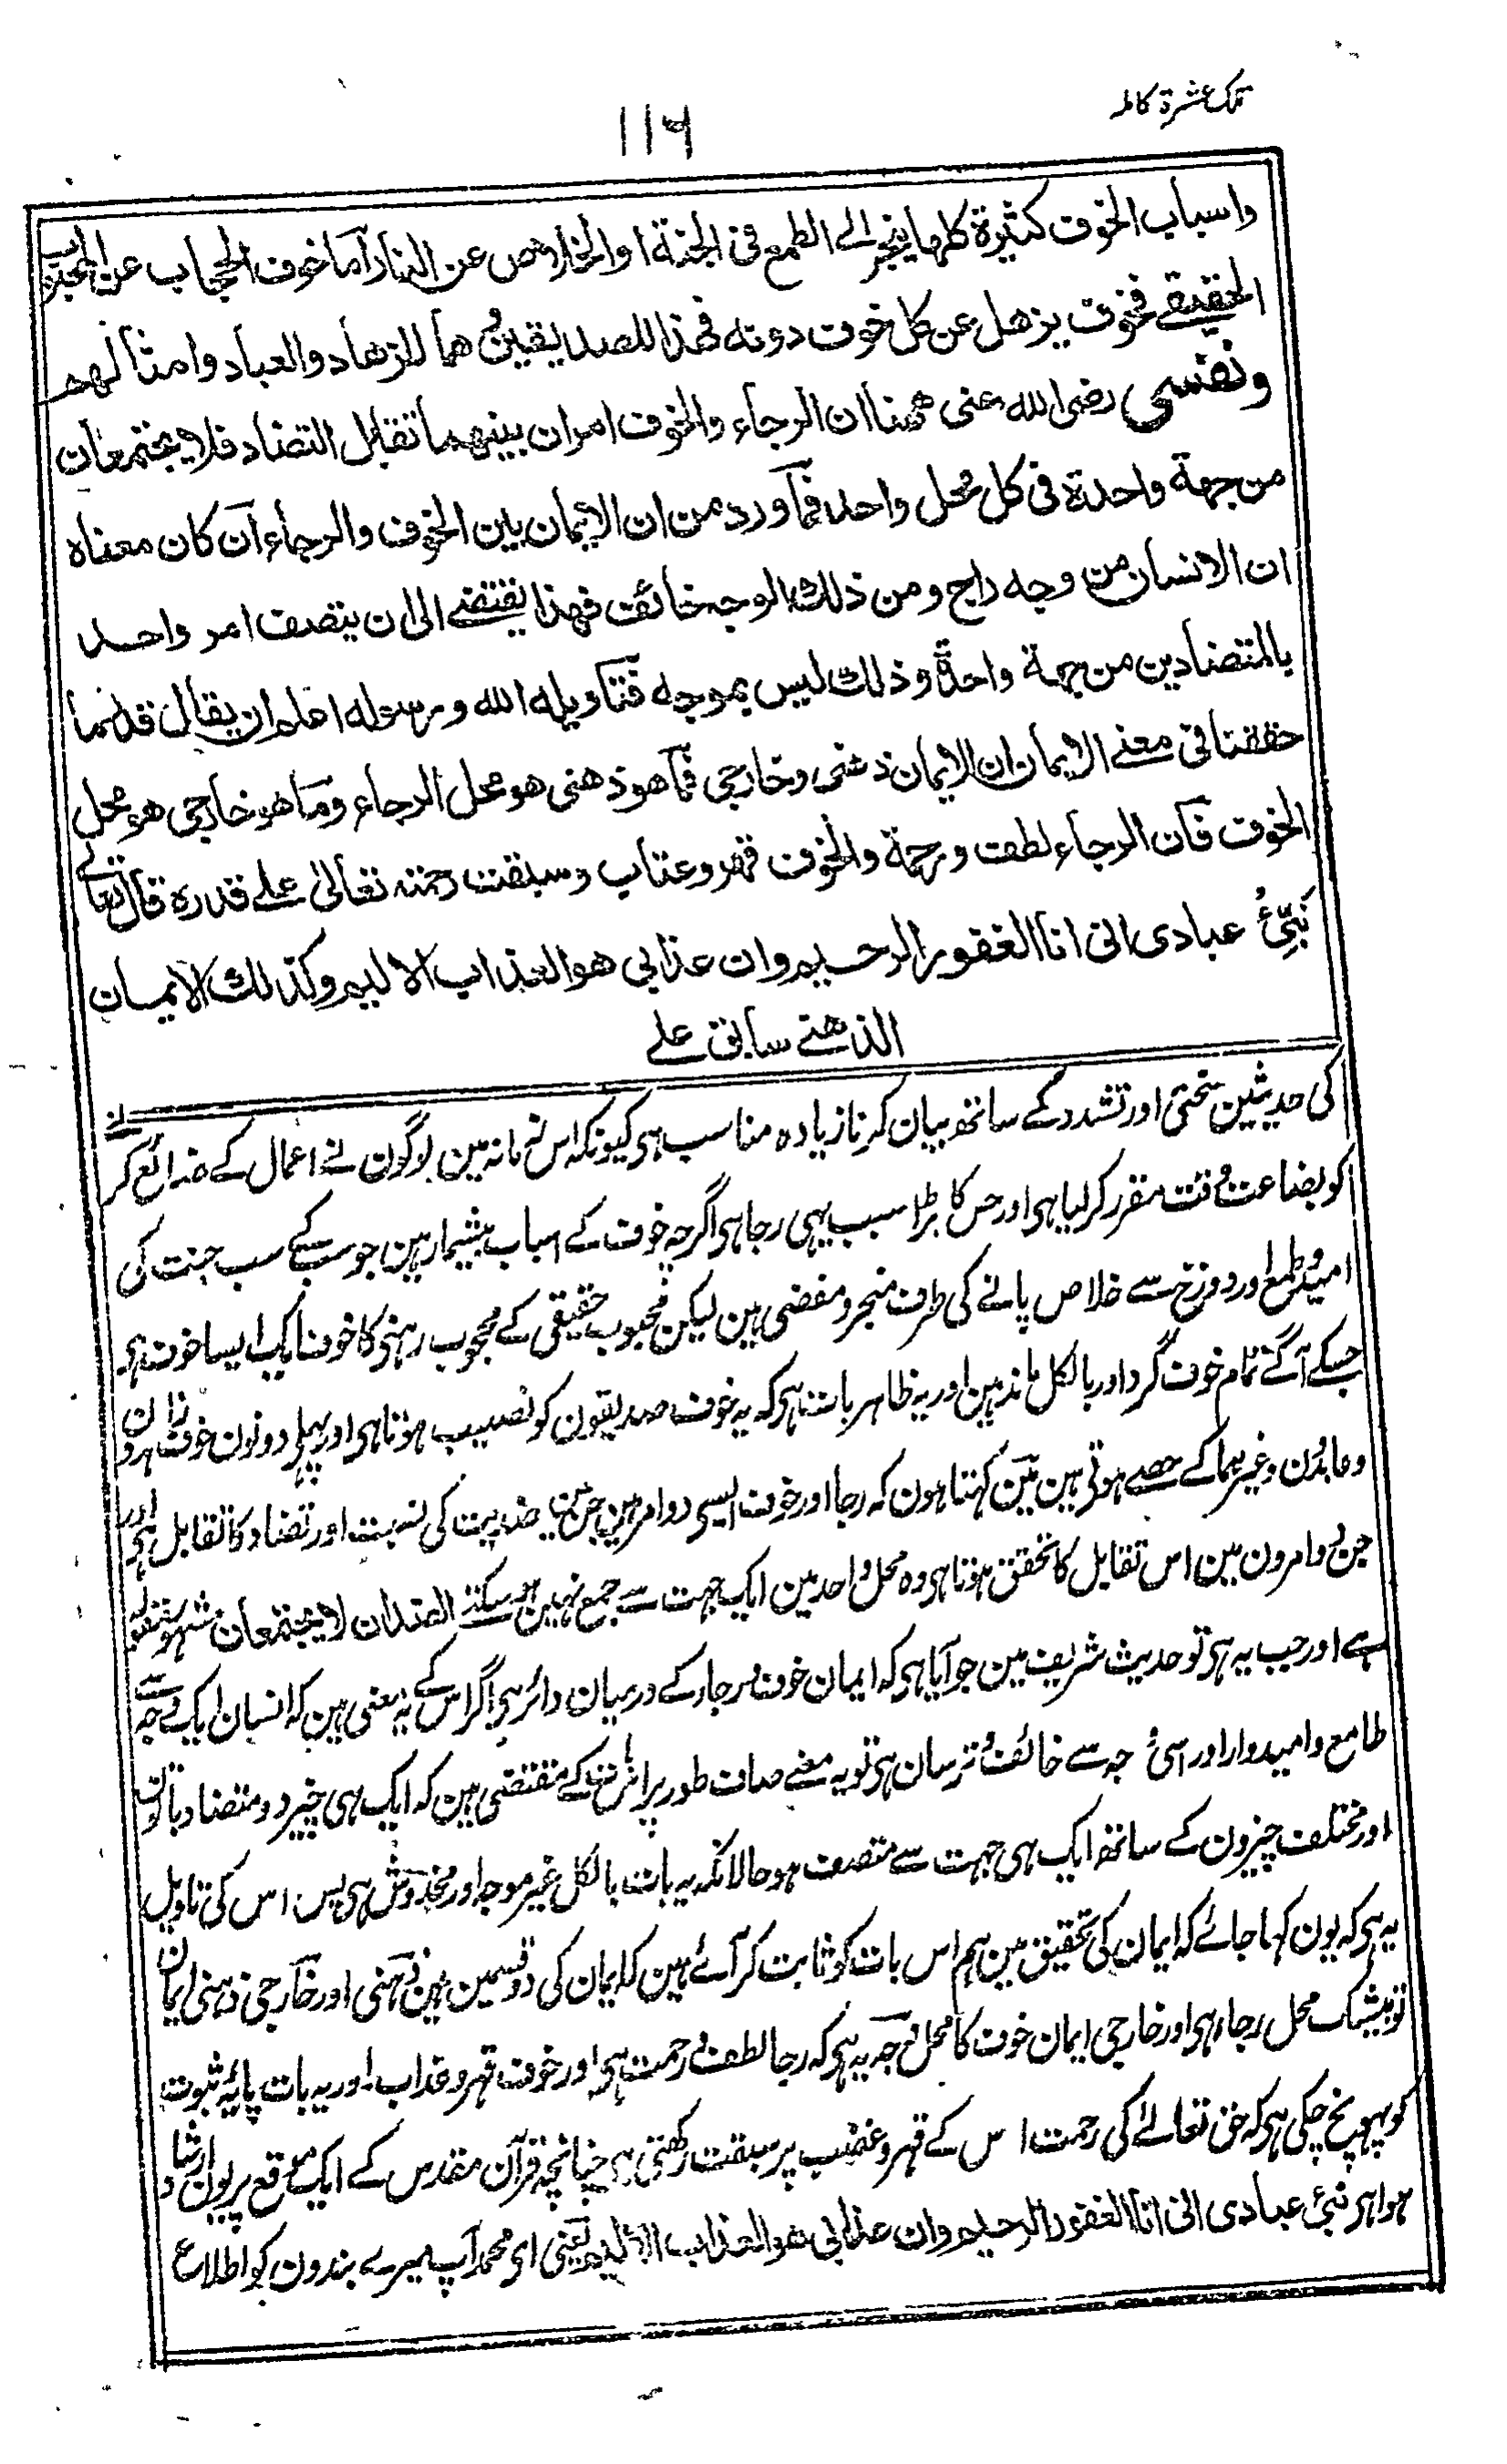 تلک عشرة کاملہ
۱۱۶
واسباب الخوف کثیرة کلها ینجر الے الطمع فی الجنة او الخلاص عن النار اما خوف الحجاب عن المحبوب
الحقیقے فخوف یزهل عن کل خوف دونه فهذا للصدیقین وهما للزهاد والعباد وامثالهم
ونفسی رضی الله عنی ههنا ان الرجاء والخوف امران بینهما تقابل التضاد فلا یجتمعان
من جهة واحدة فی کل محل واحد فما ورد من ان الایمان بین الخوف والرجاء ان کان معناه
ان الانسان من وجه راج ومن ذلك الوجه خائف فهذا یقتضے الی ان یتصف امر واحد
بالمتضادین من جهة واحدة وذلك لیس بموجه فتاویله الله ورسوله اعلم ان یقال قد لما
حققنا فی معنے الایمان ان الایمان ذهنی وخارجی فما هو ذهنی هو محل الرجاء وما هو خارجی هو محل
الخوف فان الرجاء لطف ورحمة والخوف قهر وعتاب وسبقت رحمته تعالیٰ علے قدره قال تعالے
نَبِّئُ عبادی انی انا الغفور الرحیم وان عذابی هو العذاب الالیم وکذلك الایمان
الذهنے سابق علے
کی حدیثین سختی اور تشدد کے ساتھ بیان کرنا زیادہ مناسب ہی کیونکہ اس زمانہ مین لوگون نے اعمال کے ضائع کر
کو بضاعت وقت مقرر کر لیا ہی اور جس کا بڑا سبب یہی رجا ہی اگرچہ خوف کے اسباب بیشمار ہین جو سبکے سب جنت کی
امید وطمع اور دوزخ سے خلاص پانے کی طرف منجر و مفضی ہین لیکن محبوب حقیقی کے محجوب رہنی کا خوف ایک ایسا خوف ہی
جسکے آگے تمام خوف گرد اور بالکل ماند ہین اور یہ ظاہر بات ہی کہ یہ خوف صدیقون کو نصیب ہوتا ہی اور پہلی دونون خوف زاہدون
وعابدون وغیرہما کے حصے ہوتی ہین مین کہتا ہون کہ رجا اور خوف ایسی دو امر ہین جن مین ضدیت کی نسبت اور تضاد کا تقابل ہی اور
جن دو امرون مین اس تقابل کا تحقق ہوتا ہی وہ محل واحد مین ایک جہت سے جمع نہین ہو سکتے الضدان لا یجتمعان مشہور مقولہ
ہے اور جب یہ ہی تو حدیث شریف مین جو آیا ہی کہ ایمان خوف و رجاء کے درمیان دائر ہی اگر اس کے یہ معنی ہین کہ انسان ایک وجہ سے
طامع و امیدوار اور اسی وجہ سے خائف و ترسان ہی تو یہ معنے صاف طور پر اس کے مقتضی ہین کہ ایک ہی چیز دو متضاد باتون
اور مختلف چیزون کے ساتھ ایک ہی جہت سے متصف ہو حالانکہ یہ بات بالکل غیر موجہ اور مخدوش ہی پس اس کی تاویل
یہ ہی کہ یون کہا جائے کہ ایمان کی تحقیق مین ہم اس بات کو ثابت کر آئے ہین کہ ایمان کی دو قسمین ہین ذہنی اور خارجی ذہنی ایمان
تو بیشک محل رجاء ہی اور خارجی ایمان خوف کا محل وجہ یہ ہی کہ رجا لطف و رحمت ہی اور خوف قہر و عذاب اور یہ بات پایۂ ثبوت
کو پہونچ چکی ہی کہ حق تعالےٰ کی رحمت اس کے قہر و غضب پر سبقت رکھتی ہی چنانچہ قرآن مقدس کے ایک موقع پر یون ارشاد
ہوا ہی نبئ عبادی انی انا الغفور الرحیم وان عذابی هو العذاب الالیم یعنی ای محمد آپ میرے بندون کو اطلاع